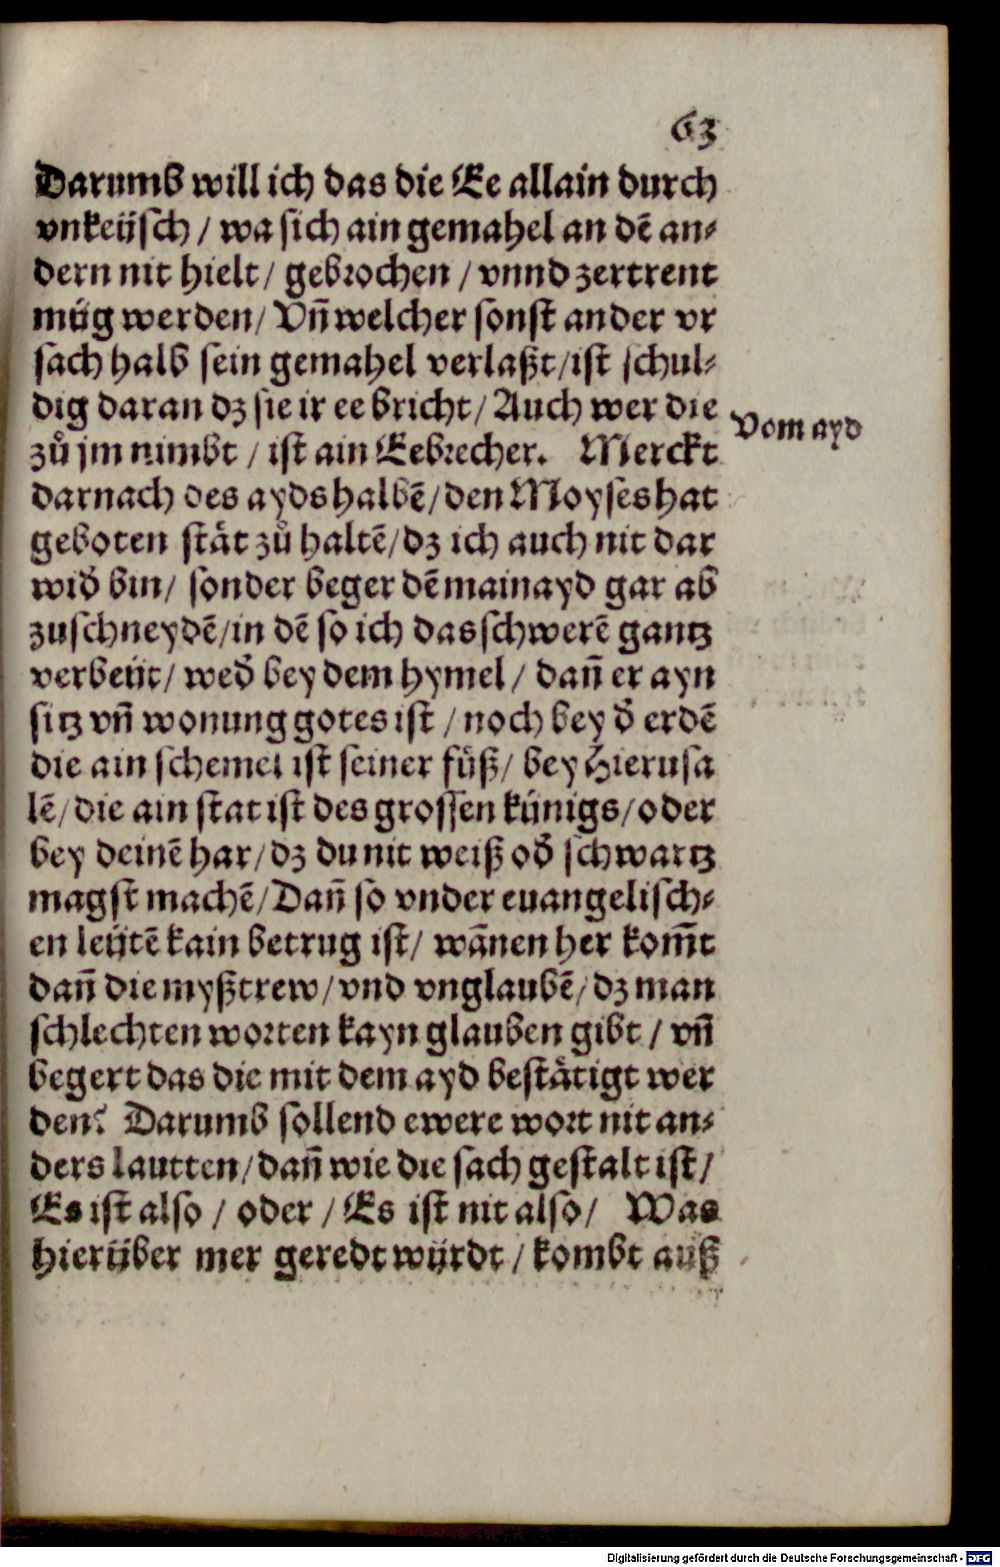 63
Darumb will ich das die Ee allain durch
vnkeüsch / wa sich ain gemahel an dē an⸗
dern nit hielt / gebrochen / vnnd zertrent
müg werden / Vn̄ welcher sonst ander vr
sach halb sein gemahel verlaßt / ist schul⸗
dig daran dz sie ir ee bricht / Auch wer die
zů jm nimbt / ist ain Eebrecher. Merckt
Vom ayd
darnach des ayds halbē / den Moyses hat
geboten stät zů haltē / dz ich auch nit dar
wid̄ bin / sonder beger dē mainayd gar ab
zuschneydē / in dē so ich das schwerē gantz
verbeüt / wed̄ bey dem hymel / dan̄ er ayn
sitz vn̄ wonung gotes ist / noch bey d̄ erdē
die ain schemel ist seiner fůß / bey Hierusa
lē / die ain stat ist des grossen künigs / oder
bey deinē har / dz du nit weiß od̄ schwartz
magst machē / Dan̄ so vnder euangelisch⸗
en leütē kain betrug ist / wānen her kom̄t
dan̄ die myßtrew / vnd vnglaubē / dz man
schlechten worten kayn glauben gibt / vn̄
begert das die mit dem ayd bestätigt wer
den? Darumb sollend ewere wort nit an⸗
ders lautten / dan̄ wie die sach gestalt ist /
Es ist also / oder / Es ist nit also / Was
hierüber mer geredt würdt / kombt auß
Digitalisierung gefördert durch die Deutsche Forschungsgemeinschaft - DFG